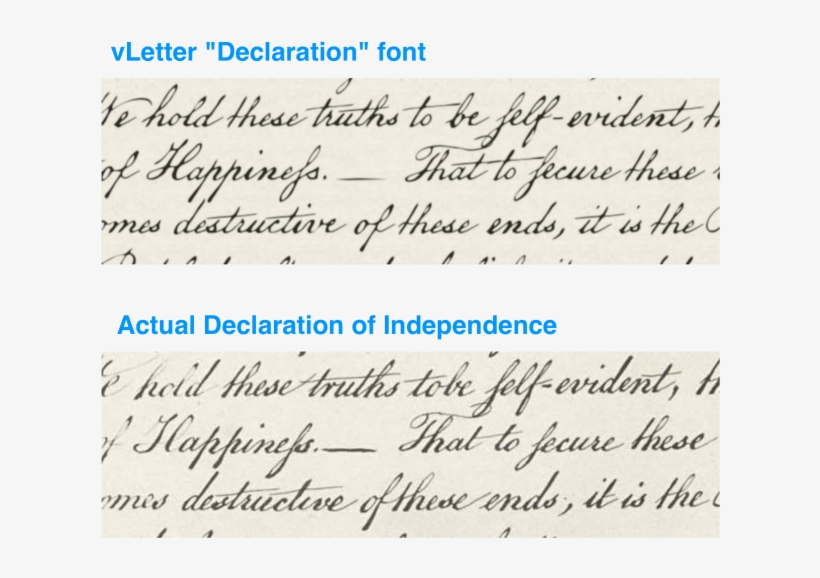 vLetter "Declaration" font
We hold these truths to be ſelf-evident, th
of Happineſs. — That to ſecure these
omes destructive of these ends, it is the
Actual Declaration of Independence
hold these truths tobe ſelf-evident, th
of Happineſs. — That to ſecure these
omes destructive of these ends, it is the